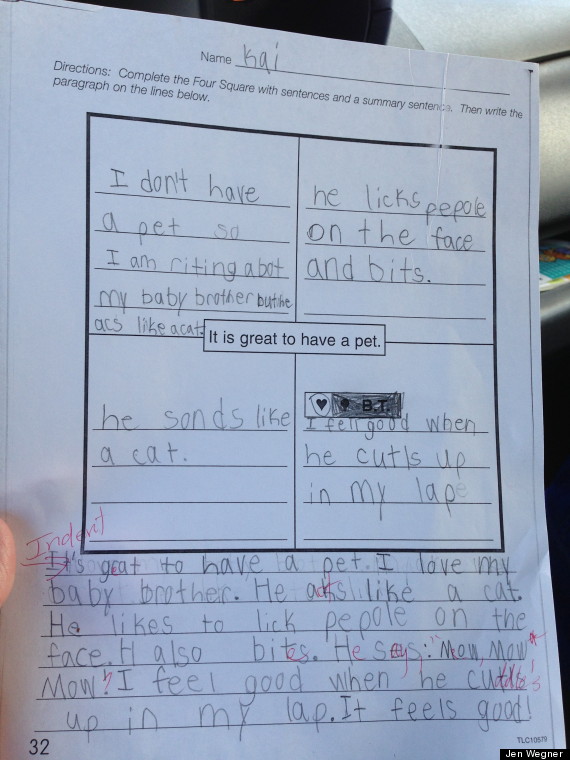 Name Kai
Directions: Complete the Four Square with sentences and a summary sentence. Then write the
paragraph on the lines below.
I don't have
a pet so
I am riting abot
my baby brother but he
acs like a cat.
he licks pepole
on the face
and bits.
It is great to have a pet.
he sonds like
a cat.
B.T.
I fell good when
he cutls up
in my lap
Indent
It's great to have a pet. I love my
baby brother. He acts like a cat.
He likes to lick pepole on the
face. H also bites. He says: "Mow, Mow
Mow"! I feel good when he cuddles
up in my lap. It feels good!
32
TLC10570
Jen Wegner